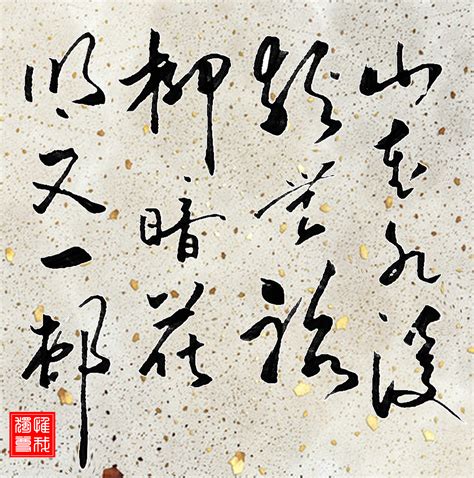 山重水複
疑無路
柳暗花
明又一邨